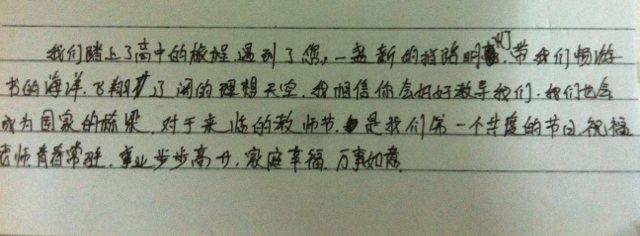 我们踏上了高中的旅程,遇到了您,一盏新的指路明灯,带我们畅游
书的海洋,飞翔了阔的理想天空,我相信你会好好教导我们,我们也会
成为国家的栋梁,对于来临的教师节,是我们第一个共度的节日,祝福
老师青春常驻,事业步步高升,家庭幸福,万事如意